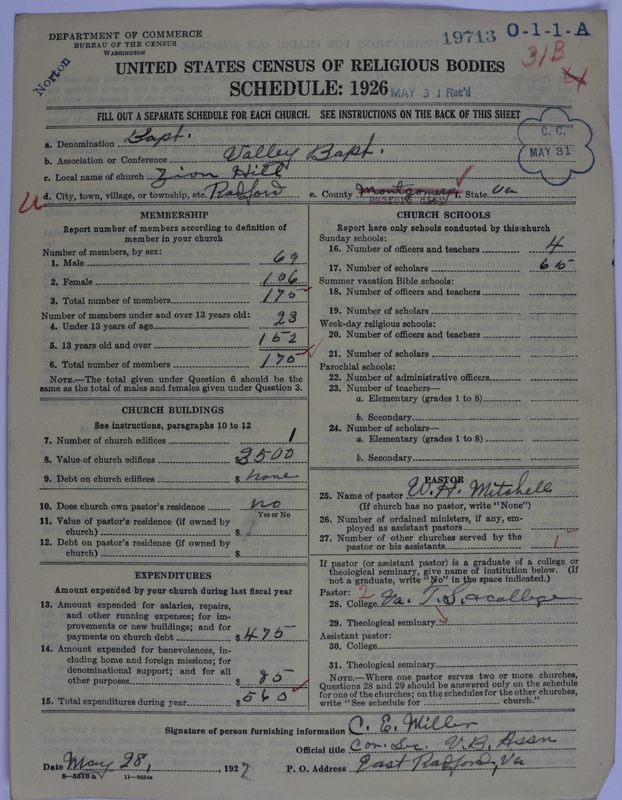 DEPARTMENT OF COMMERCE
BUREAU OF THE CENSUS
WASHINGTON
Norton
19713 O-1-1-A
31B
UNITED STATES CENSUS OF RELIGIOUS BODIES
SCHEDULE: 1926 MAY 31 Rec'd
FILL OUT A SEPARATE SCHEDULE FOR EACH CHURCH. SEE INSTRUCTIONS ON THE BACK OF THIS SHEET
C. C.
MAY 31
a. Denomination Bapt.
b. Association or Conference Valley Bapt.
c. Local name of church Zion Hill
d. City, town, village, or township, etc. Radford e. County Montgomery f. State Va
Radford City
MEMBERSHIP
Report number of members according to definition of
member in your church
Number of members, by sex:
1. Male 69
2. Female 106
3. Total number of members 175
Number of members under and over 13 years old:
4. Under 13 years of age 23
5. 13 years old and over 152
6. Total number of members 175
NOTE.—The total given under Question 6 should be the
same as the total of males and females given under Question 3.
CHURCH BUILDINGS
See instructions, paragraphs 10 to 12
7. Number of church edifices 1
8. Value of church edifices $3500
9. Debt on church edifices $ None
10. Does church own pastor's residence no
Yes or No
11. Value of pastor's residence (if owned by
church) $
12. Debt on pastor's residence (if owned by
church) $
EXPENDITURES
Amount expended by your church during last fiscal year
13. Amount expended for salaries, repairs,
and other running expenses; for im-
provements or new buildings; and for
payments on church debt $475
14. Amount expended for benevolences, in-
cluding home and foreign missions; for
denominational support; and for all
other purposes $ 85
15. Total expenditures during year $560
CHURCH SCHOOLS
Report here only schools conducted by this church
Sunday schools:
16. Number of officers and teachers 4
17. Number of scholars 65
Summer vacation Bible schools:
18. Number of officers and teachers
19. Number of scholars
Week-day religious schools:
20. Number of officers and teachers
21. Number of scholars
Parochial schools:
22. Number of administrative officers
23. Number of teachers—
a. Elementary (grades 1 to 8)
b. Secondary
24. Number of scholars—
a. Elementary (grades 1 to 8)
b. Secondary
PASTOR
25. Name of pastor W. H. Mitchell
(If church has no pastor, write "None")
26. Number of ordained ministers, if any, em-
ployed as assistant pastors
27. Number of other churches served by the
pastor or his assistants 1
If pastor (or assistant pastor) is a graduate of a college or
theological seminary, give name of institution below. (If
not a graduate, write "No" in the space indicated.)
Pastor: 2
28. College Va. T. S. & college
29. Theological seminary
Assistant pastor:
30. College
31. Theological seminary
NOTE.—Where one pastor serves two or more churches,
Questions 28 and 29 should be answered only on the schedule
for one of the churches; on the schedules for the other churches,
write "See schedule for church."
Signature of person furnishing information C. E. Miller
Official title Cor. Sec. V.B. Assn
Date May 28, 1927 P. O. Address East Radford, Va
8-5518a 11-9054a